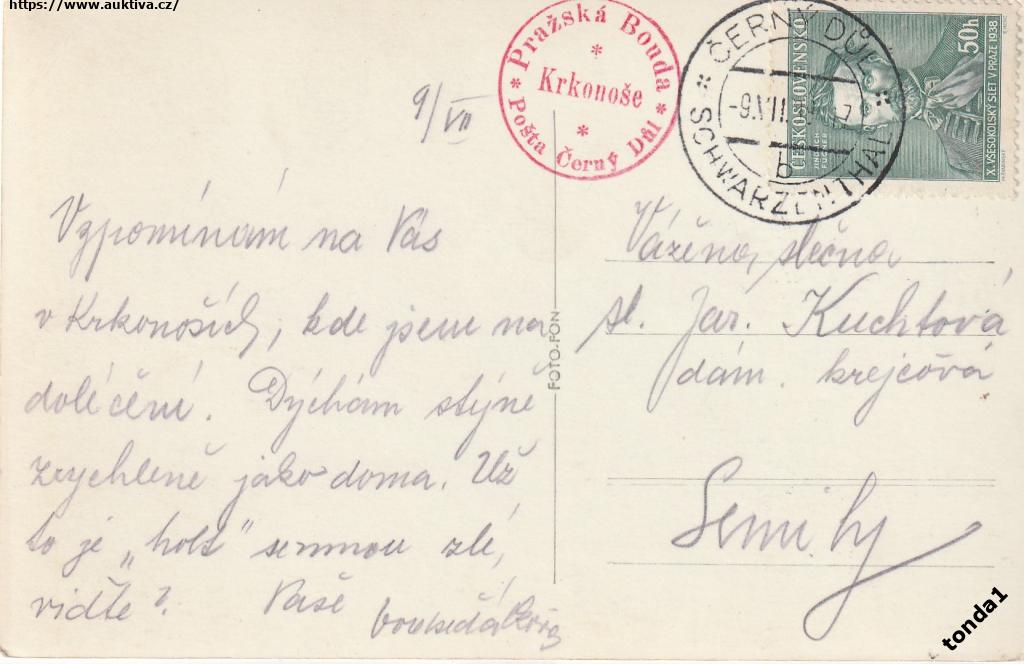 https://www.auktiva.cz/
Pražská Bouda
Krkonoše
Pošta Černý Důl
ČERNÝ DŮL
-9.VII.
b
SCHWARZENTHAL
ČESKOSLOVENSKO
JINDŘICH FÜGNER
50h
X. VŠESOKOLSKÝ SLET V PRAZE 1938
9/VII
Vzpomínám na Vás
v Krkonoších, kde jsem na
doléčení. Dýchám stejně
zrychleně jako doma. Už
to je „holt" semnou zlé,
viďte? Vaše
FOTO-FON
Vážená slečna
sl. Jar. Kuchtová
dám. krejčová
Semily
tonda1